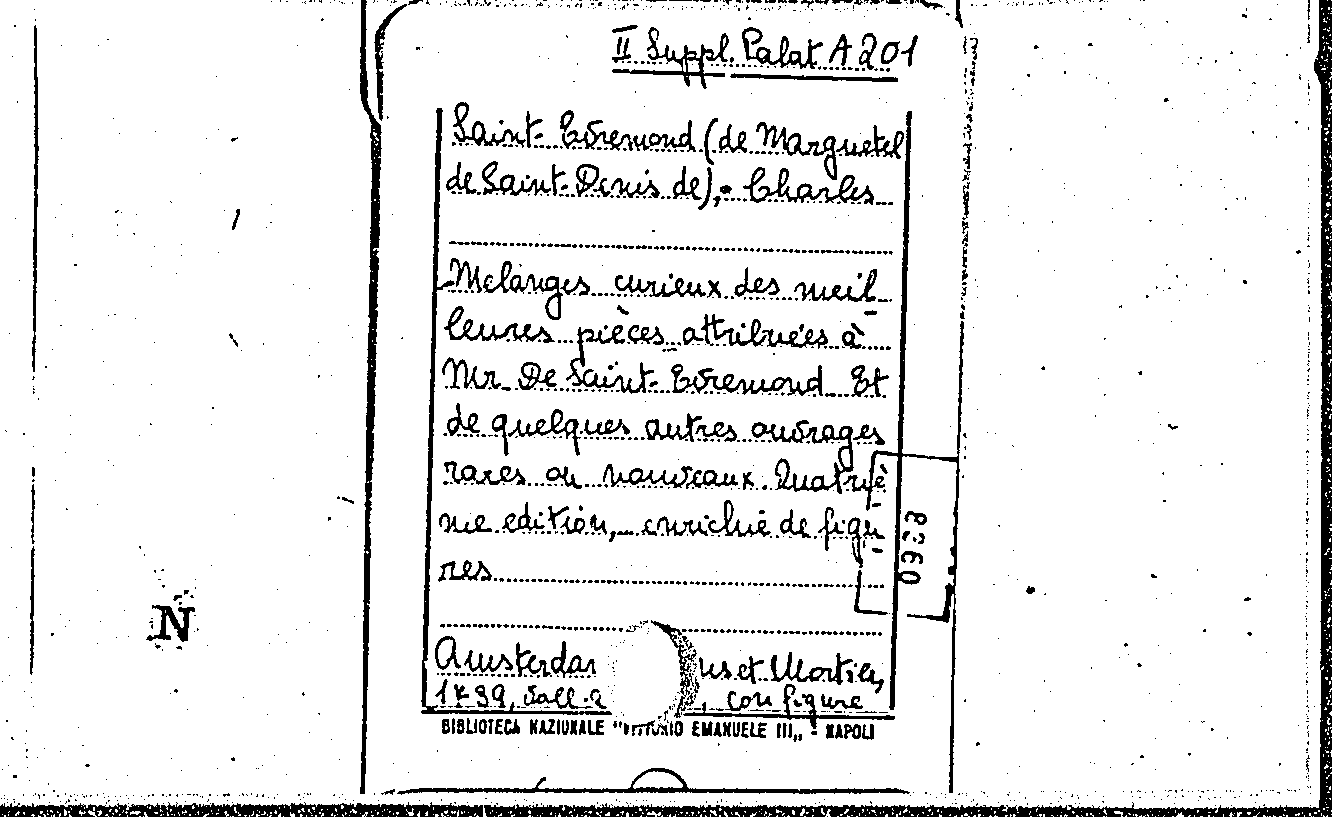 II Suppl. Palat A 201
Saint-Evremond (de Marguetel
de Saint-Denis de),- Charles
Mélanges curieux des meil-
leures pièces attribuées à
Mr De Saint-Evremond Et
de quelques autres ouvrages
rares ou nouveaux. Quatriè-
me edition, enrichie de figu-
res
Amsterdam us et Mortier,
1739, voll. 2, con figure
BIBLIOTECA NAZIONALE "VITTORIO EMANUELE III„ - NAPOLI
N